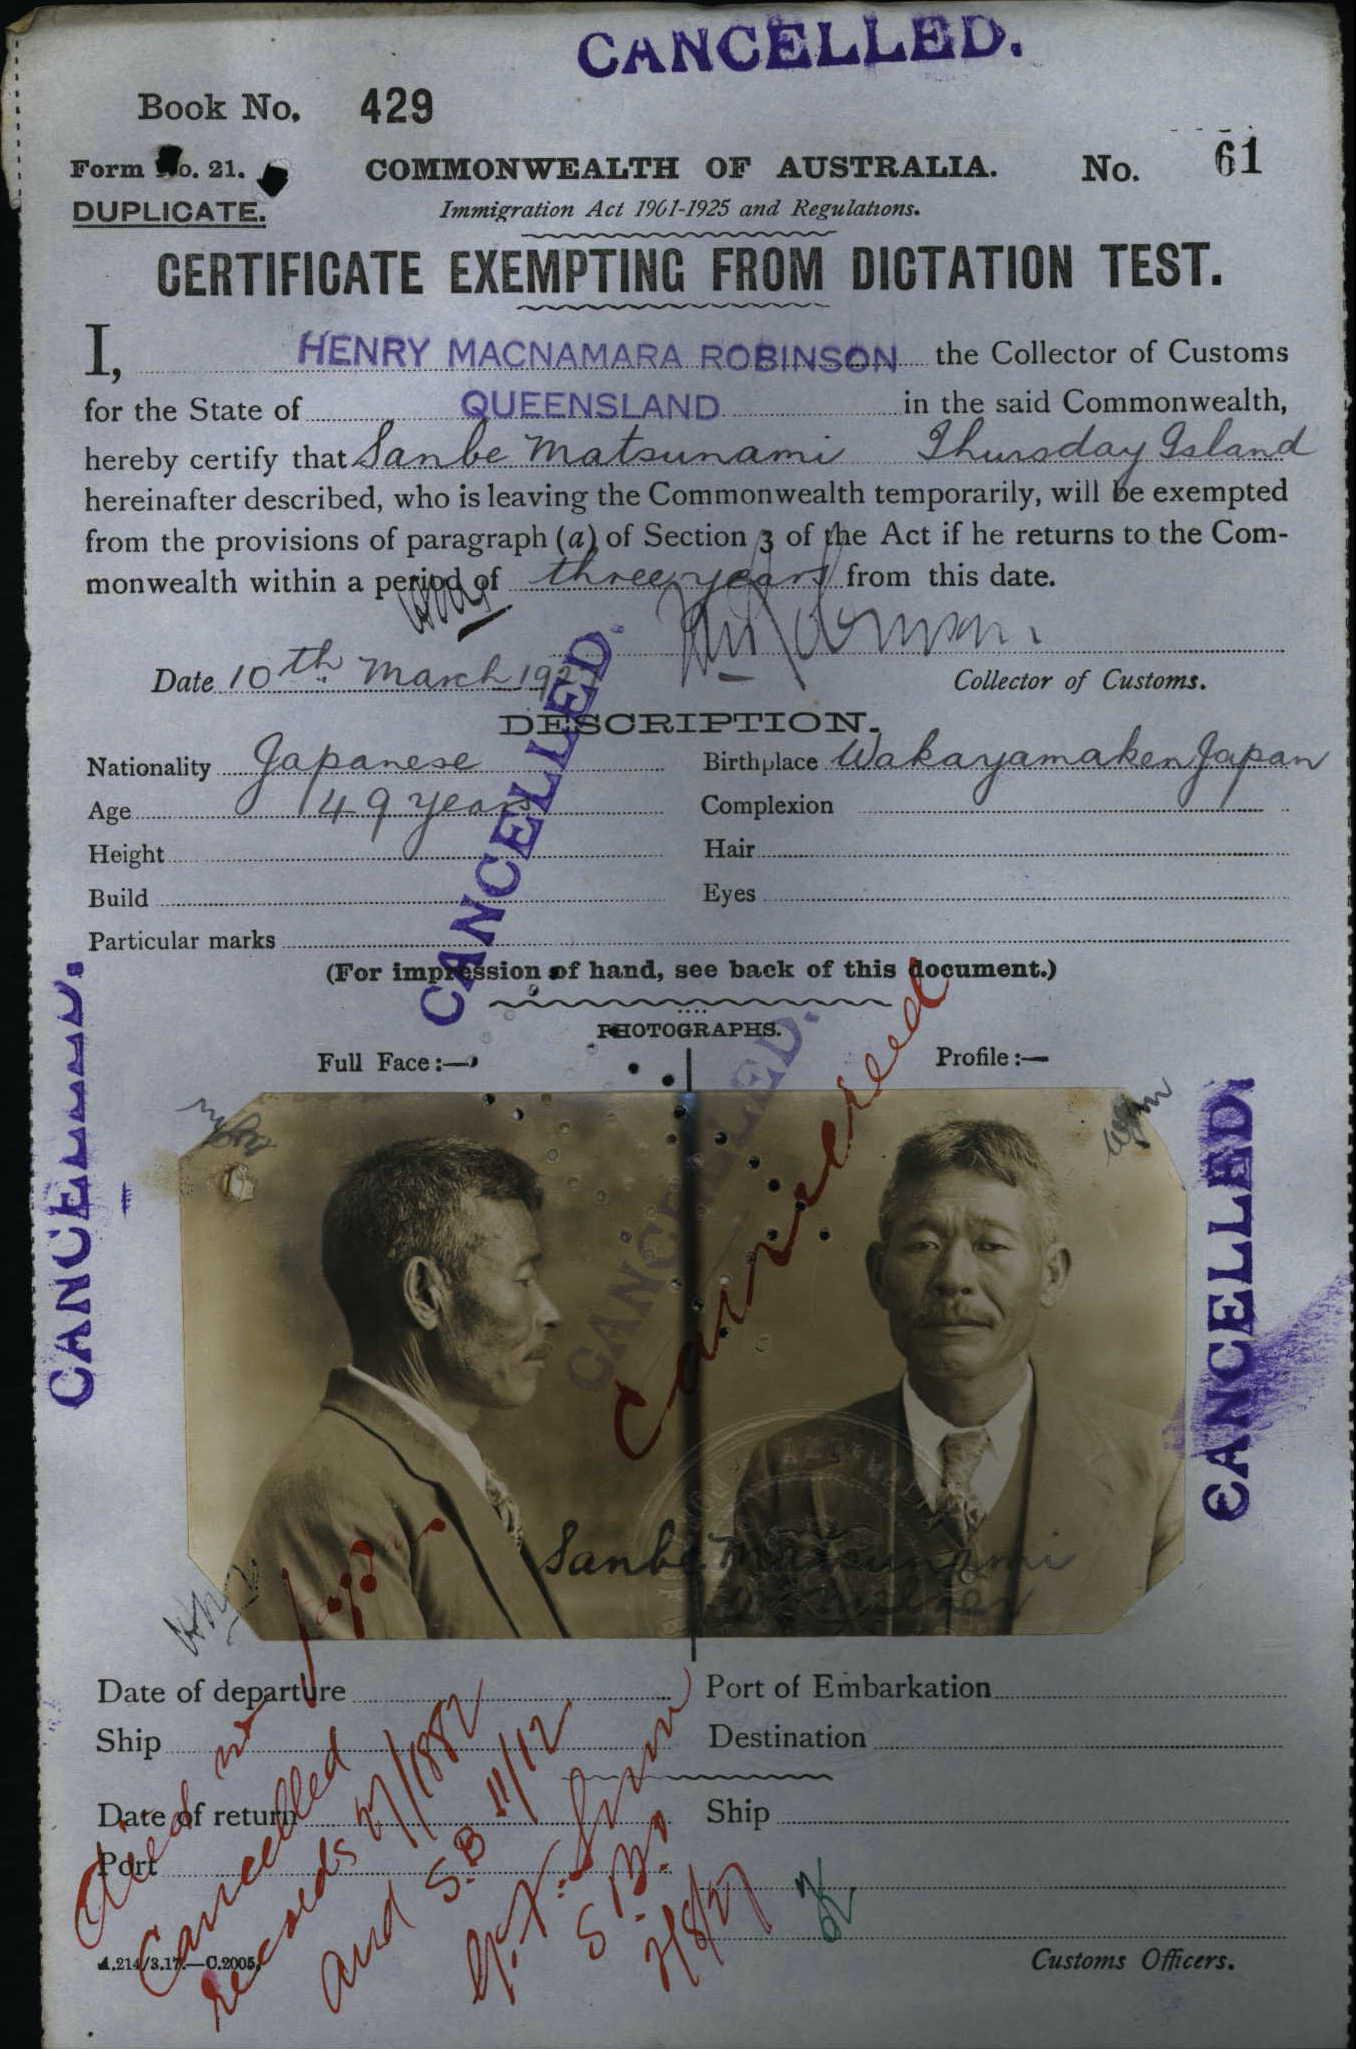 CANCELLED.
Book No. 429
Form No. 21. COMMONWEALTH OF AUSTRALIA. No. 61
DUPLICATE. Immigration Act 1901-1925 and Regulations.
CERTIFICATE EXEMPTING FROM DICTATION TEST.
I, HENRY MACNAMARA ROBINSON the Collector of Customs
for the State of QUEENSLAND in the said Commonwealth,
hereby certify that Sanbe Matsunami Thursday Island
hereinafter described, who is leaving the Commonwealth temporarily, will be exempted
from the provisions of paragraph (a) of Section 3 of the Act if he returns to the Com-
monwealth within a period of three years from this date.
Date 10th March 192
Collector of Customs.
CANCELLED.
DESCRIPTION.
Nationality Japanese Birthplace Wakayamaken Japan
Age 49 years Complexion
Height Hair
Build Eyes
Particular marks
(For impression of hand, see back of this document.)
PHOTOGRAPHS.
Full Face:— Profile:—
CANCELLED.
CANCELLED.
Cancelled
CANCELLED.
Sanbe Matsunami
Date of departure Port of Embarkation
Ship Destination
Date of return Ship
Port
Died in Japan
Cancelled
records 27/1882
and S.B 11/12
S.B.
2/8/27
A.214/3.17.—C.2005. Customs Officers.